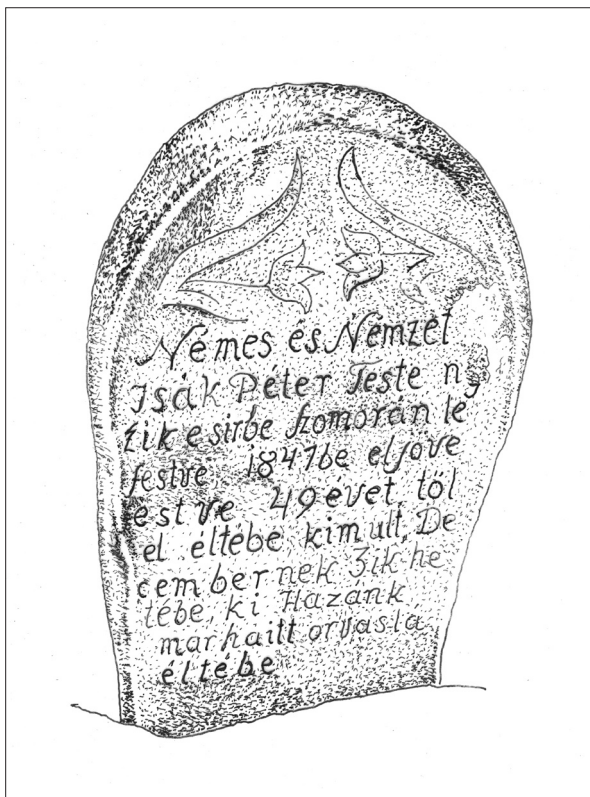 Némes és Némzet
Isák Péter Teste ny
zik e sirbe szomorán le
festve, 1847be eljöve
estve 49 évet töl
el éltébe kimult, De
cembernek 3ik he
tébe, ki Hazánk
marhaitt orvasla
éltébe